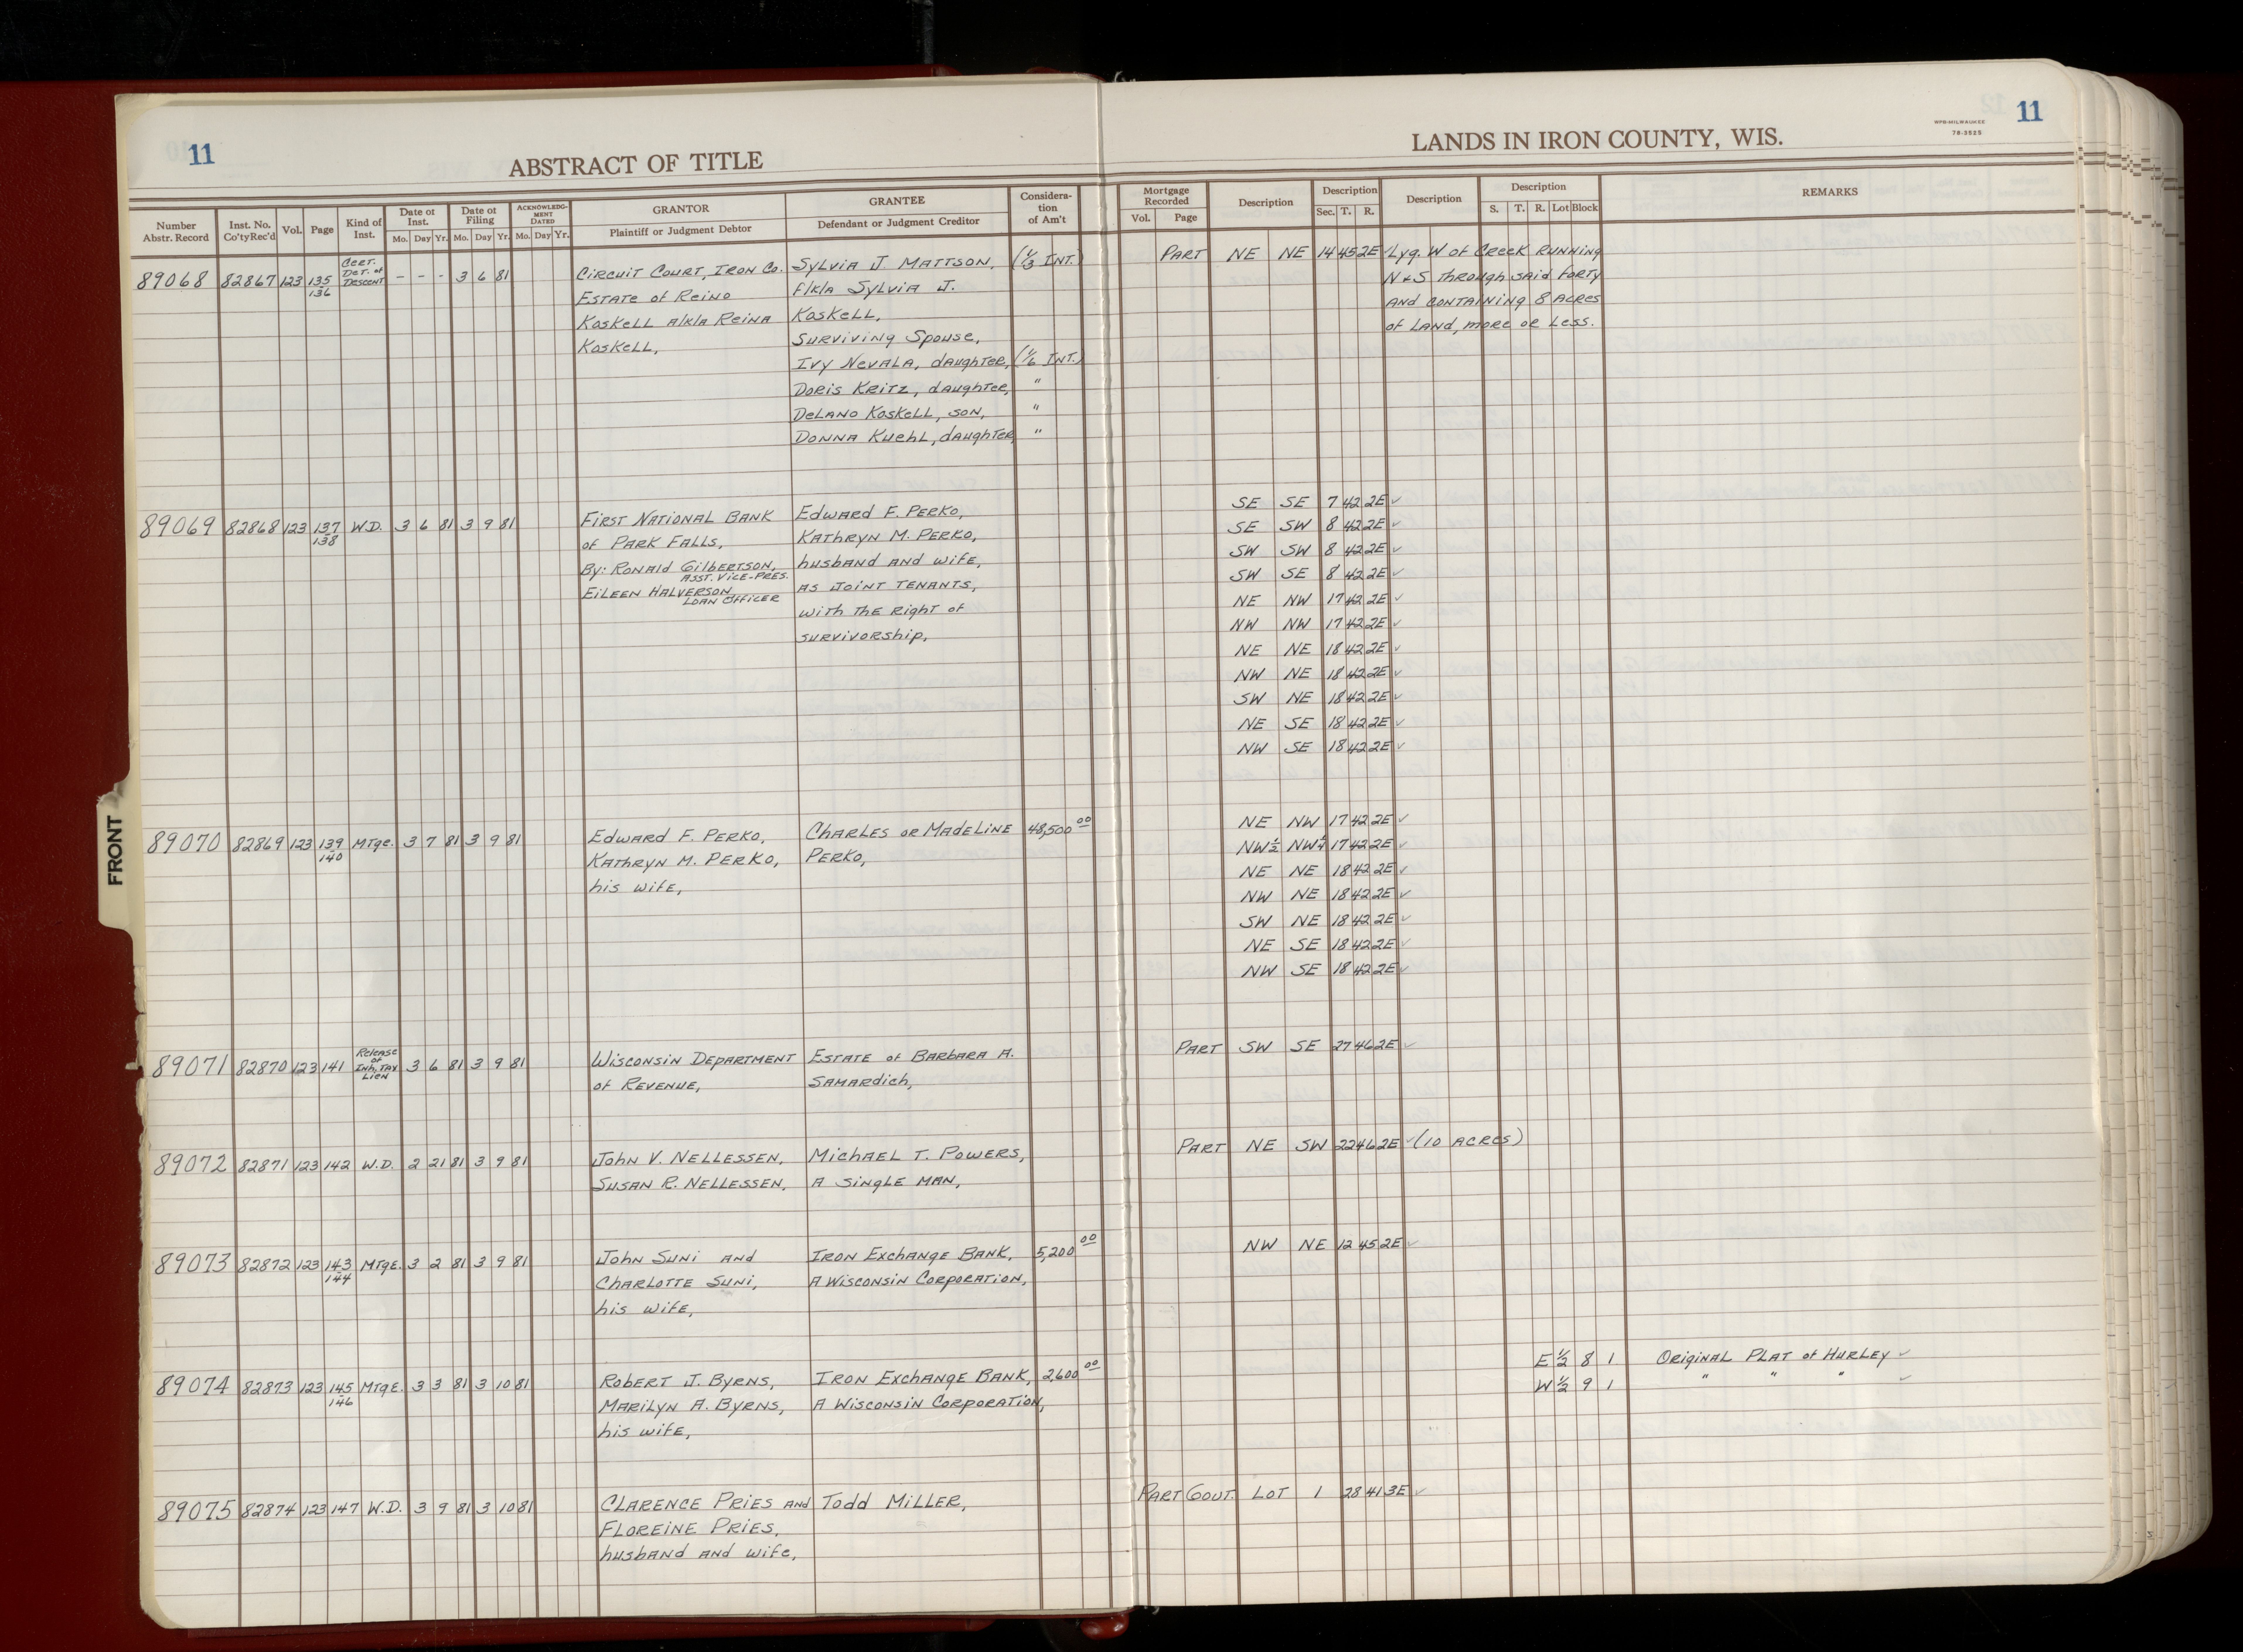 11
ABSTRACT OF TITLE
LANDS IN IRON COUNTY, WIS.
WPB-MILWAUKEE
78-3525
11
Number Abstr. Record
Inst. No. Co'ty Rec'd
Vol.
Page
Kind of Inst.
Date of Inst. Mo. Day Yr.
Date of Filing Mo. Day Yr.
ACKNOWLEDGMENT DATED Mo. Day Yr.
GRANTOR Plaintiff or Judgment Debtor
GRANTEE Defendant or Judgment Creditor
Considera-tion of Am't
Mortgage Recorded Vol. Page
Description
Description Sec. T. R.
Description
Description S. T. R. Lot Block
REMARKS
89068 82867 123 135 136 Cert. Det. of Descent - - - 3 6 81 Circuit Court, Iron Co. Sylvia J. Mattson, (1/3 Int.) Part NE NE 14 45 2E ✓ Lyg. W of Creek running
Estate of Reino f/k/a Sylvia J. N & S through said forty
Koskell a/k/a Reina Koskell, and containing 8 acres
Koskell, Surviving Spouse, of land, more or less.
Ivy Nevala, daughter, (1/6 Int.)
Doris Kritz, daughter, "
Delano Koskell, son, "
Donna Kuehl, daughter, "
89069 82868 123 137 138 W.D. 3 6 81 3 9 81 First National Bank Edward F. Perko, SE SE 7 42 2E ✓
of Park Falls, Kathryn M. Perko, SE SW 8 42 2E ✓
By: Ronald Gilbertson, Asst. Vice-Pres. husband and wife, SW SW 8 42 2E ✓
Eileen Halverson, Loan Officer as joint tenants, SW SE 8 42 2E ✓
with the right of NE NW 17 42 2E ✓
survivorship, NW NW 17 42 2E ✓
NE NE 18 42 2E ✓
NW NE 18 42 2E ✓
SW NE 18 42 2E ✓
NE SE 18 42 2E ✓
NW SE 18 42 2E ✓
89070 82869 123 139 140 Mtge. 3 7 81 3 9 81 Edward F. Perko, Charles or Madeline 48,500 00 NE NW 17 42 2E ✓
Kathryn M. Perko, Perko, NW½ NW¼ 17 42 2E ✓
his wife, NE NE 18 42 2E ✓
NW NE 18 42 2E ✓
SW NE 18 42 2E ✓
NE SE 18 42 2E ✓
NW SE 18 42 2E ✓
89071 82870 123 141 Release of Inh. Tax Lien 3 6 81 3 9 81 Wisconsin Department Estate of Barbara A. Part SW SE 27 46 2E ✓
of Revenue, Samardich,
89072 82871 123 142 W.D. 2 21 81 3 9 81 John V. Nellessen, Michael T. Powers, Part NE SW 22 46 2E ✓ (10 acres)
Susan R. Nellessen, a single man,
89073 82872 123 143 144 Mtge. 3 2 81 3 9 81 John Suni and Iron Exchange Bank, 5,200 00 NW NE 12 45 2E ✓
Charlotte Suni, a Wisconsin Corporation,
his wife,
89074 82873 123 145 146 Mtge. 3 3 81 3 10 81 Robert J. Byrns, Iron Exchange Bank, 2,600 00 E ½ 8 1 Original Plat of Hurley ✓
Marilyn A. Byrns, a Wisconsin Corporation, W ½ 9 1 " " " ✓
his wife,
89075 82874 123 147 W.D. 3 9 81 3 10 81 Clarence Pries and Todd Miller, Part Gout. Lot 1 28 41 3E ✓
Floreine Pries,
husband and wife,
FRONT